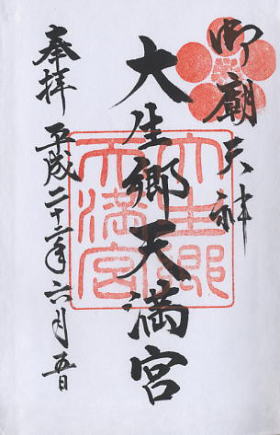 御廟天神
大生郷天満宮
奉拝
平成二十一年六月五日
大生郷
天満宮